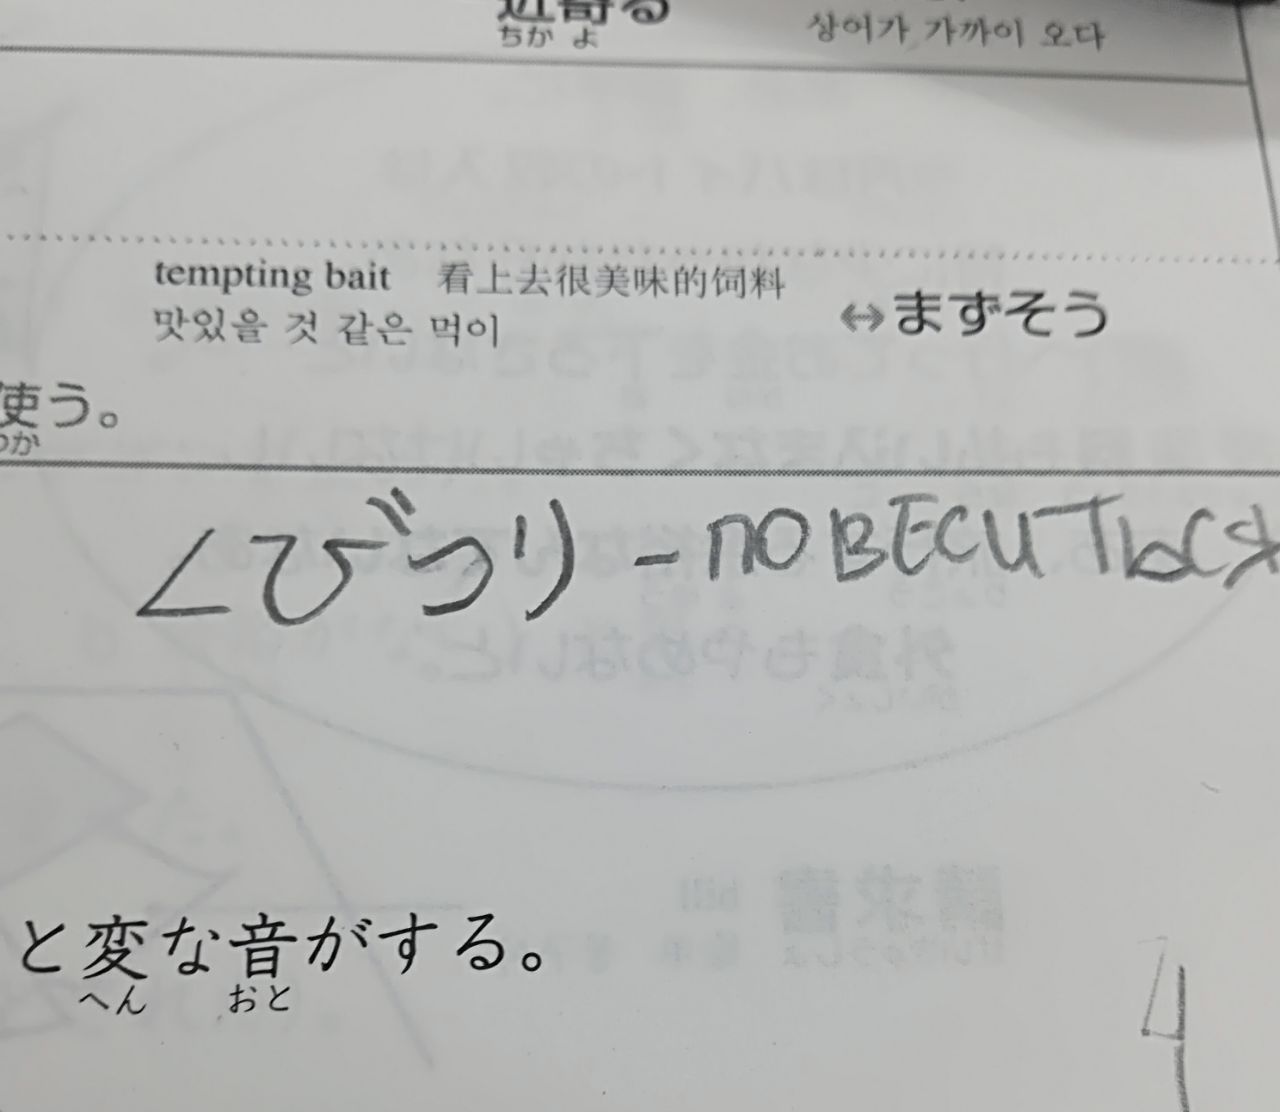 近寄る
ちか よ
상어가 가까이 오다
tempting bait 看上去很美味的饲料
맛있을 것 같은 먹이
↔まずそう
使う。
つか
くびつり - ПОВЕСИТЬСЯ
と変な音がする。
へん おと
4